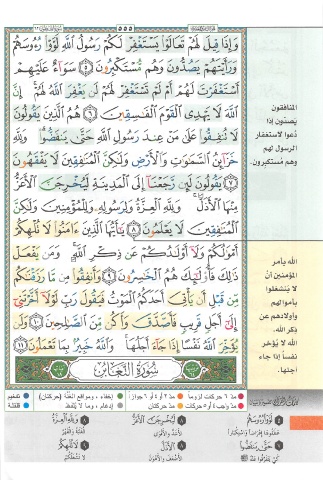 سورة المنافقون ٦٣
٥٥٥
وَإِذَا قِيلَ لَهُمْ تَعَالَوْا يَسْتَغْفِرْ لَكُمْ رَسُولُ اللَّهِ لَوَّوْا رُءُوسَهُمْ
وَرَأَيْتَهُمْ يَصُدُّونَ وَهُم مُّسْتَكْبِرُونَ ٥ سَوَاءٌ عَلَيْهِمْ
أَسْتَغْفَرْتَ لَهُمْ أَمْ لَمْ تَسْتَغْفِرْ لَهُمْ لَن يَغْفِرَ اللَّهُ لَهُمْ إِنَّ
اللَّهَ لَا يَهْدِى الْقَوْمَ الْفَاسِقِينَ ٦ هُمُ الَّذِينَ يَقُولُونَ
لَا تُنفِقُوا عَلَىٰ مَنْ عِندَ رَسُولِ اللَّهِ حَتَّىٰ يَنفَضُّوا وَلِلَّهِ
خَزَائِنُ السَّمَاوَاتِ وَالْأَرْضِ وَلَٰكِنَّ الْمُنَافِقِينَ لَا يَفْقَهُونَ
٧ يَقُولُونَ لَئِن رَّجَعْنَا إِلَى الْمَدِينَةِ لَيُخْرِجَنَّ الْأَعَزُّ
مِنْهَا الْأَذَلَّ وَلِلَّهِ الْعِزَّةُ وَلِرَسُولِهِ وَلِلْمُؤْمِنِينَ وَلَٰكِنَّ
الْمُنَافِقِينَ لَا يَعْلَمُونَ ٨ يَا أَيُّهَا الَّذِينَ ءَامَنُوا لَا تُلْهِكُمْ
أَمْوَالُكُمْ وَلَا أَوْلَادُكُمْ عَن ذِكْرِ اللَّهِ وَمَن يَفْعَلْ
ذَٰلِكَ فَأُولَٰئِكَ هُمُ الْخَاسِرُونَ ٩ وَأَنفِقُوا مِن مَّا رَزَقْنَاكُم
مِّن قَبْلِ أَن يَأْتِىَ أَحَدَكُمُ الْمَوْتُ فَيَقُولَ رَبِّ لَوْلَا أَخَّرْتَنِى
إِلَىٰ أَجَلٍ قَرِيبٍ فَأَصَّدَّقَ وَأَكُن مِّنَ الصَّالِحِينَ ١٠ وَلَن
يُؤَخِّرَ اللَّهُ نَفْسًا إِذَا جَاءَ أَجَلُهَا وَاللَّهُ خَبِيرٌ بِمَا تَعْمَلُونَ ١١
سُورَةُ التَّغَابُنِ
المنافقون
يصدون إذا
دُعوا لاستغفار
الرسول لهم
وهم مستكبرون.
الله يأمر
المؤمنين أن
لا ينشغلوا
بأموالهم
وأولادهم عن
ذكر الله.
الله لا يؤخر
نفساً إذا جاء
أجلها.
مدّ ٦ حركات لزوماً
مدّ ٢ أو ٤ أو ٦ جوازاً
إخفاء، ومواقع الغُنَّة (حركتان)
تفخيم
مدّ واجب ٤ أو ٥ حركات
مدّ حركتان
إدغام، وما لا يُلفظ
قلقلة